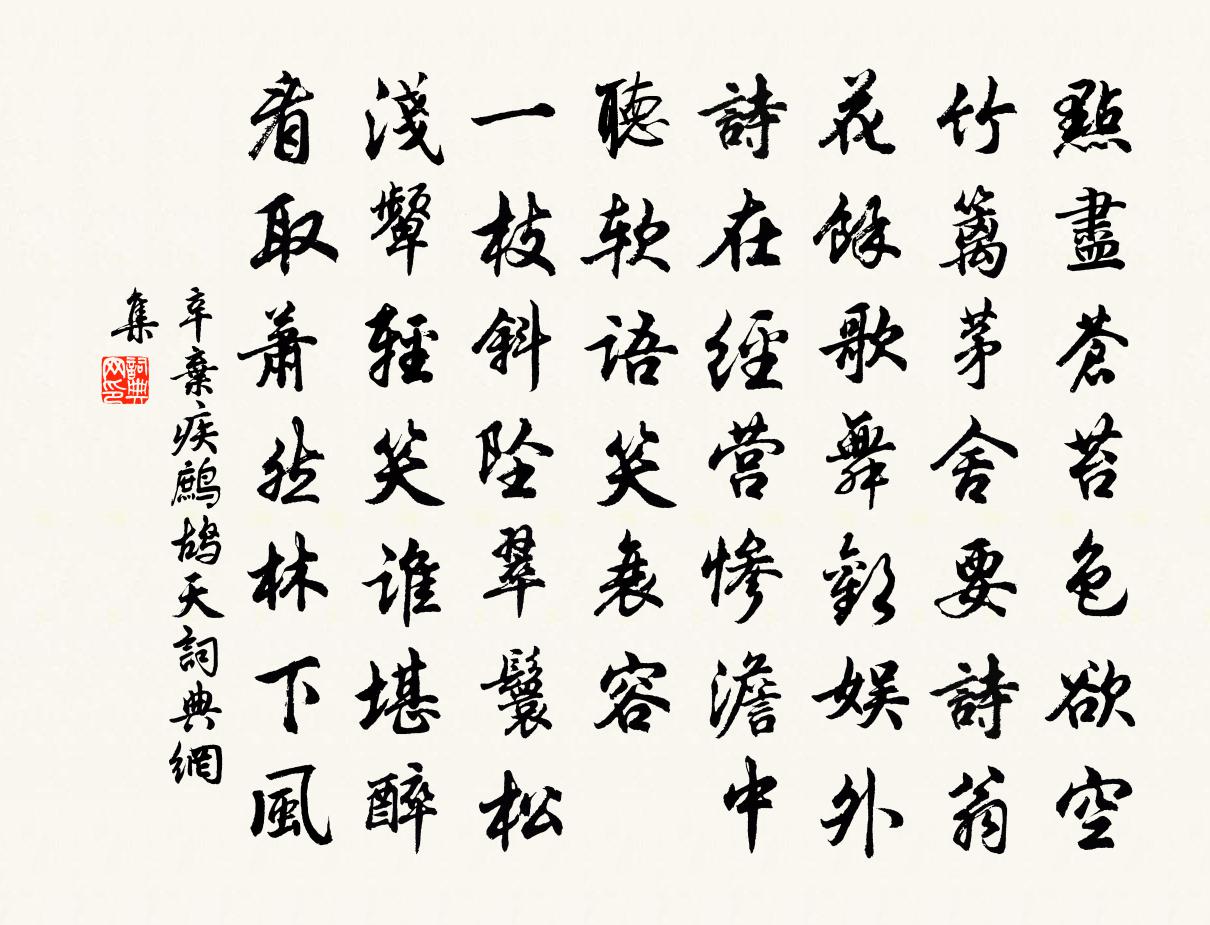 點盡蒼苔色欲空
竹籬茅舍要詩翁
花餘歌舞歡娛外
詩在經營慘澹中
聽軟語笑衰容
一枝斜墜翠鬟松
淺顰輕笑誰堪醉
看取蕭然林下風
辛棄疾鷓鴣天詞典網
集
詞典網印